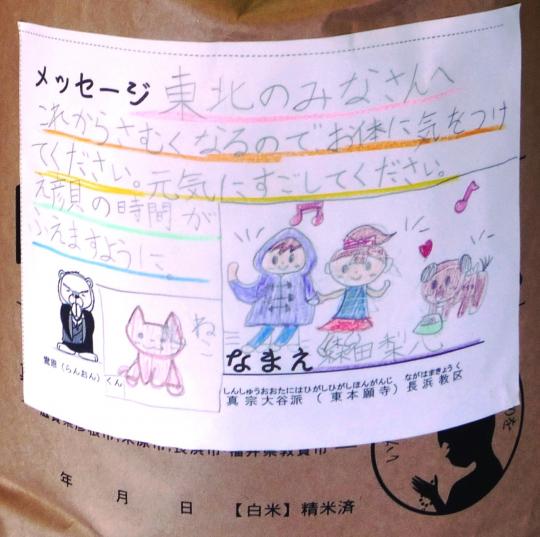 メッセージ 東北のみなさんへ
これからさむくなるので、お体に気をつけ
てください。元気にすごしてください。
え顔の時間が
ふえますように。
ねこ
鸞恩（らんおん）くん
なまえ
しんしゅうおおたにはひがしひがしほんがんじ ながはまきょうく
真宗大谷派（東本願寺）長浜教区
年 月 日 【白米】精米済